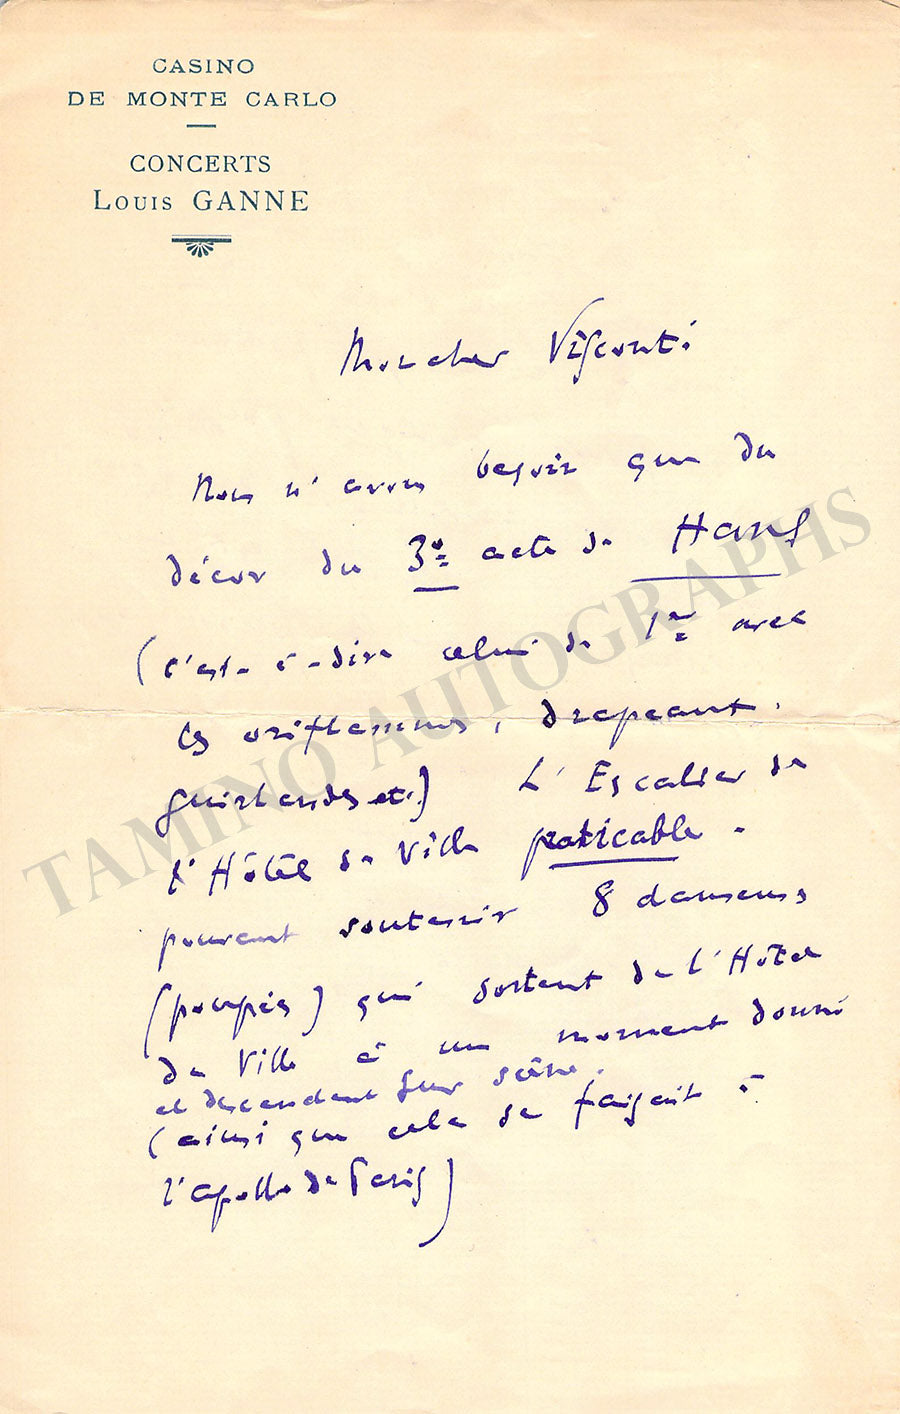 CASINO
DE MONTE CARLO
CONCERTS
LOUIS GANNE
Mon cher Visconti
Nous n'avons besoin que du
décor du 3e acte de Hans
(c'est-à-dire celui du 1er avec
les oriflammes, drapeaux,
guirlandes etc.) L'Escalier de
l'Hôtel de Ville praticable -
pouvant soutenir 8 danseuses
(poupées) qui sortent de l'Hôtel
de Ville à un moment donné
et descendent sur scène.
(ainsi que cela se faisait à
l'apollo de Paris)
TAMINO AUTOGRAPHS